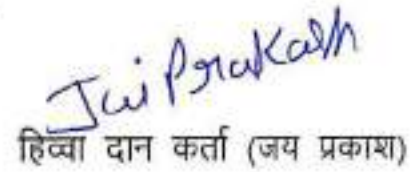 Jai Prakash
हिव्वा दान कर्ता (जय प्रकाश)